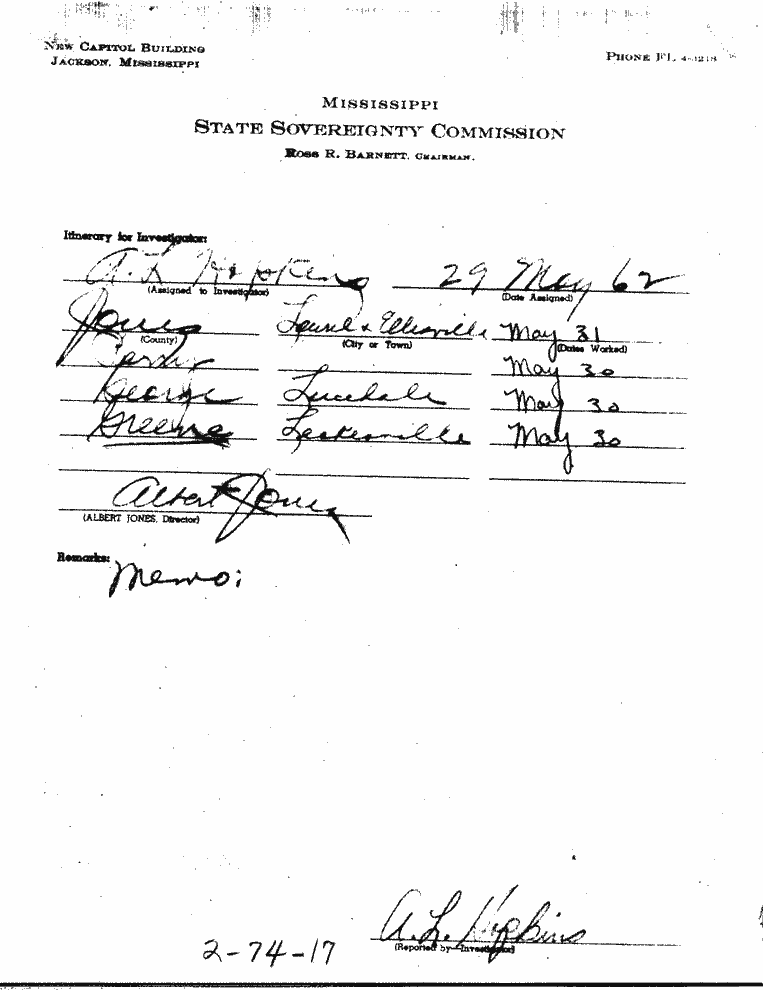 NEW CAPITOL BUILDING
JACKSON, MISSISSIPPI
PHONE FL 4-3218
MISSISSIPPI
STATE SOVEREIGNTY COMMISSION
ROSS R. BARNETT, CHAIRMAN.
Itinerary for Investigator:
A. L Hopkins 29 May 62
(Assigned to Investigator) (Date Assigned)
Jones Laurel & Ellisville May 31
(County) (City or Town) (Dates Worked)
Perry May 30
George Lucedale May 30
Greene Leakesville May 30
Albert Jones
(ALBERT JONES, Director)
Remarks:
Memo:
A. L. Hopkins
(Reported by Investigator)
2-74-17